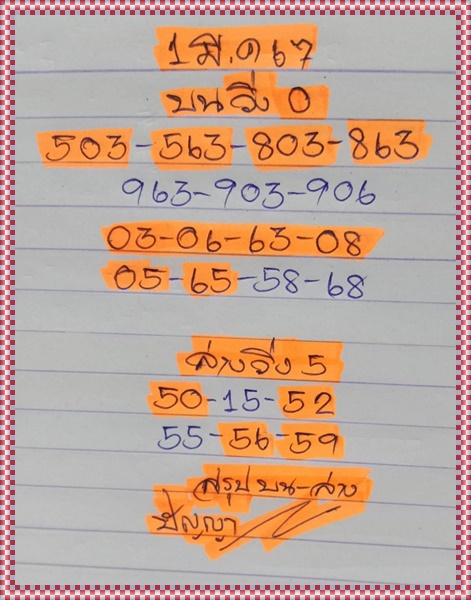 1 มี.ค 67
บนวิ่ง 0
503-563-803-863
963-903-906
03-06-63-08
05-65-58-68
ล่างวิ่ง 5
50-15-52
55-56-59
สรุปบน-ล่าง
ปัญญา